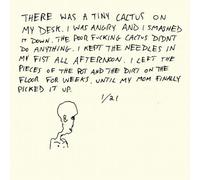 THERE WAS A TINY CACTUS ON
MY DESK. I WAS ANGRY AND I SMASHED
IT DOWN. THE POOR FUCKING CACTUS DIDNT
DO ANYTHING. I KEPT THE NEEDLES IN
MY FIST ALL AFTERNOON. I LEFT THE
PIECES OF THE POT AND THE DIRT ON THE
FLOOR FOR WEEKS. UNTIL MY MOM FINALLY
PICKED IT UP.
1/21